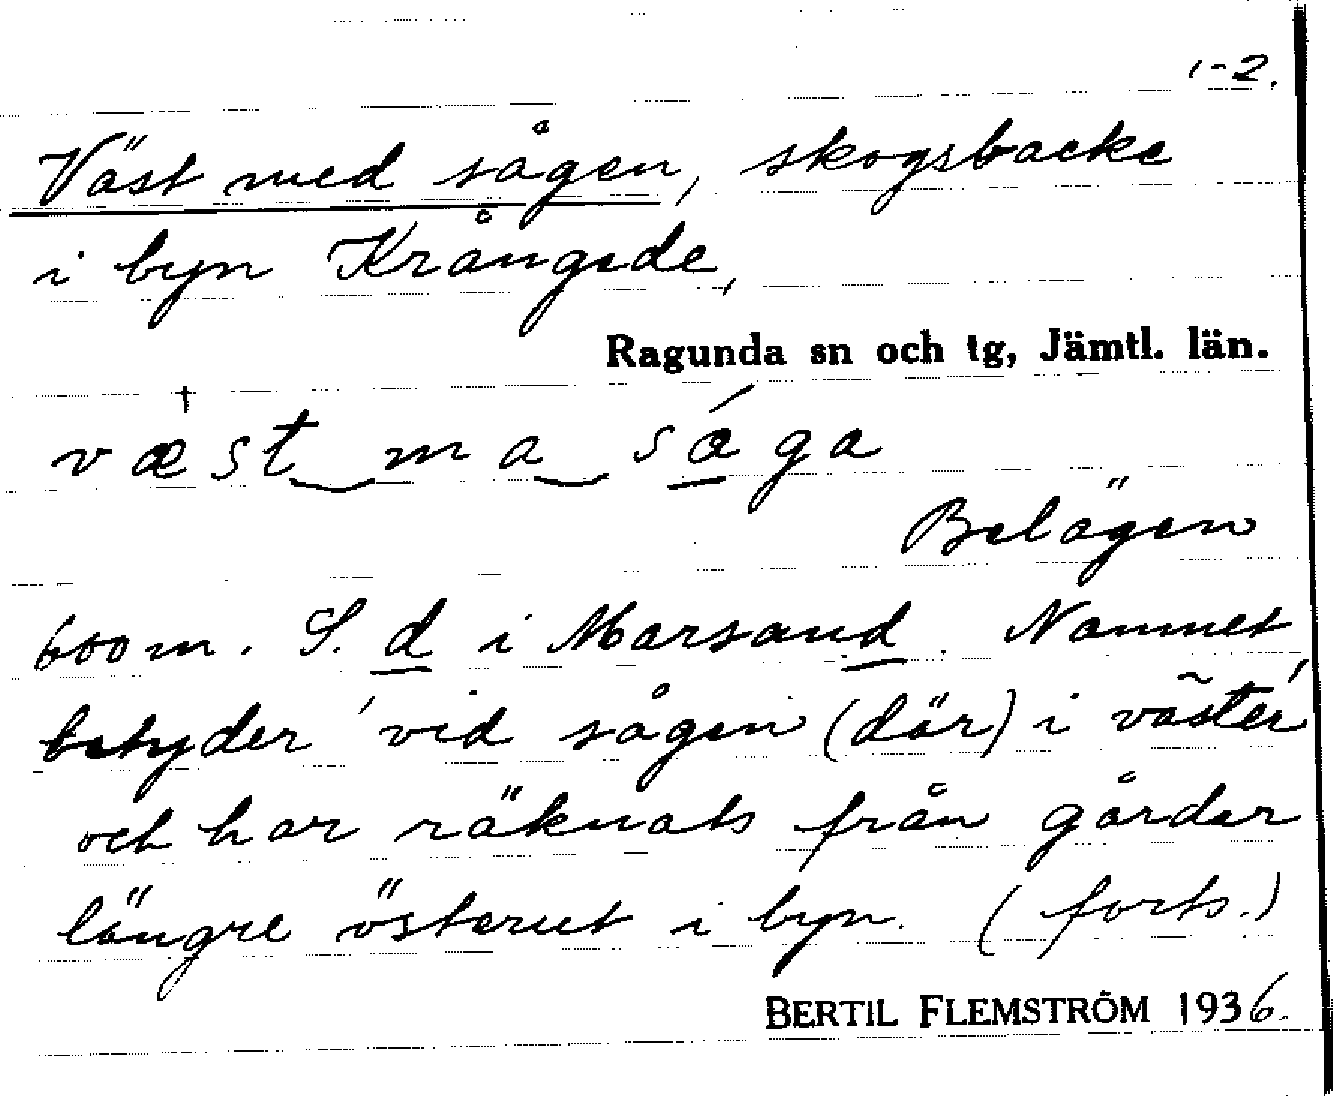 1-2.
Väst med sågen, skogsbacke
i byn Krångede,
Ragunda sn och tg, Jämtl. län.
væst ma sága
Belägen
600 m. S. d i Marsand. Namnet
betyder 'vid sågen (där) i väster'
och har räknats från gårdar
längre österut i byn. (forts.)
BERTIL FLEMSTRÖM 1936.